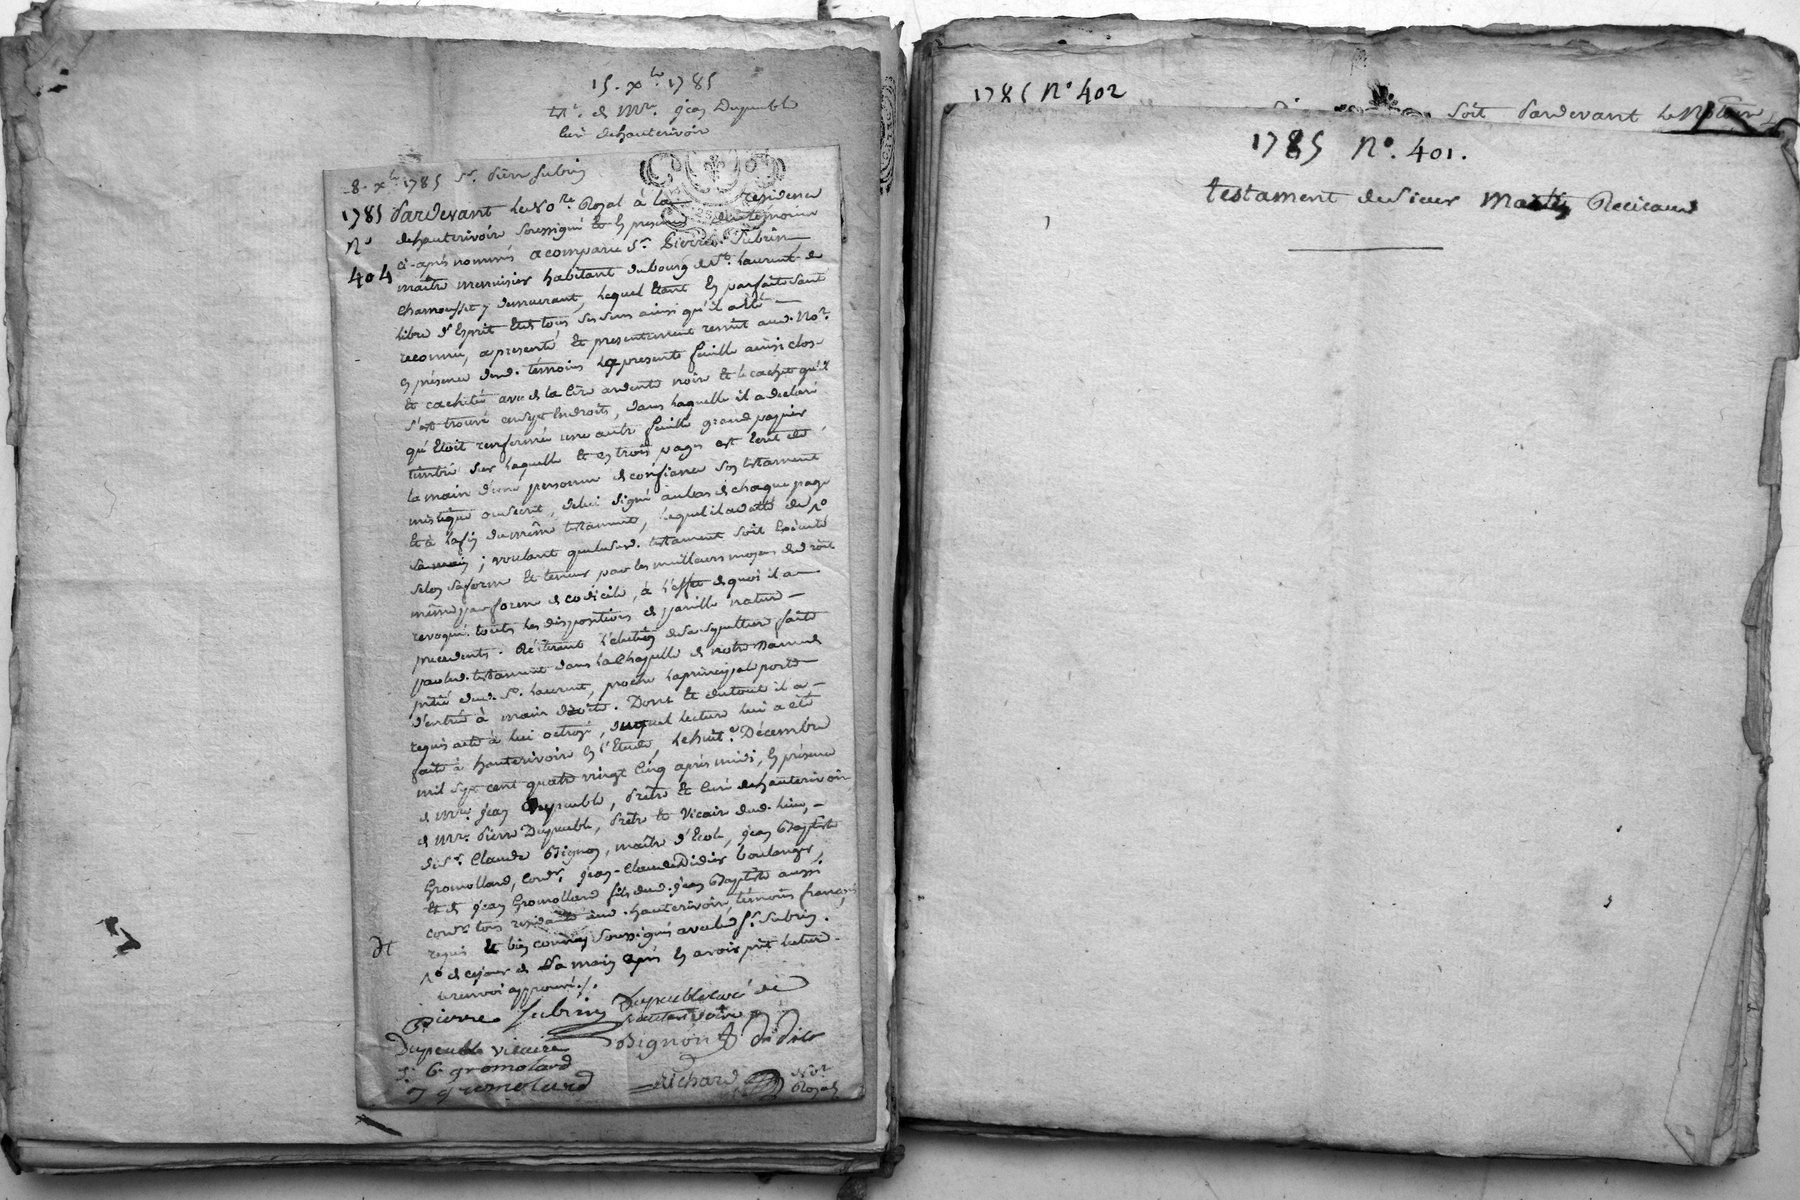 15. xbre 1785
tt. de Mre. jean Dupeuble
Curé dehauterivoir
8. xbre 1785 Sr. pierre Subrin
1785 Pardevant le No.re Royal à la résidence
No
404
dehauterivoire soussigné Et En présence des témoins
ci-après nommés a comparu Sr. Pierre Subrin
maître menuisier habitant du bourg de St. laurent de
Chamousset y demeurant, lequel Etant En parfaite santé
libre d'Esprit Et de tous ses sens ainsi qu'il a été
reconnu, a présenté Et présentement remit aud. No.re
En présence desd. témoins la présente feuille ainsi close
Et cachetée avec de la Cire ardente noire Et le cachet qu'il
s'est trouvé en sept Endroits, dans laquelle il a déclaré
qu'Etoit renfermée une autre feuille grand pappier
timbré sur laquelle Et en trois pages est Ecrit de
la main d'une personne de confiance son testament
mistique ou secret, de lui signé au bas de chaque page
Et à la fin du même testament, lequel il a datté de
sa main ; voulant que le susd. testament soit Exécuté
selon sa forme Et teneur par les meilleurs moyens de droit
même par forme de codicile, à l'effet de quoi il a
revoqué toutes les dispositions de pareille nature
précédents. Réitérant l'élection de sa sepulture faite
par led. testament dans la Chapelle de notre Dame de
pitié dud. St. laurent, proche la principale porte
d'entrée à main droite. Dont Et du tout il a
requis acte à lui octroyé, duquel lecture lui a été
faite à hauterivoire En l'Etude, le huit.e Décembre
mil sept cent quatre vingt Cinq après midi, En présence
de Mre. jean Dupeuble, Prêtre Et Curé dehauterivoir
de Mre. pierre Dupeuble, Prêtre Et Vicaire dud. lieu,
de Sr. Claude Bignon, maître d'Ecole, jean Baptiste
Gromollard, cord.r, jean-Claude Didier boulanger,
Et de jean Gromollard fils dud. jean Baptiste aussi
cord.r tous residants aud. hauterivoire, témoins français
requis Et bien connus soussignés avec led. Sr. Subrin.
de ce jour de sa main après En avoir prit lecture
le renvoi approuvé ./.
Pierre Subrin Dupeuble curé de
hauterivoire
Dupeuble vicaire Bignon Didier
J B gromolard
J gromolard Richard Nore
Royal
1785 No 402
soit Pardevant le Notaire
1785 No. 401.
testament du Sieur Martin